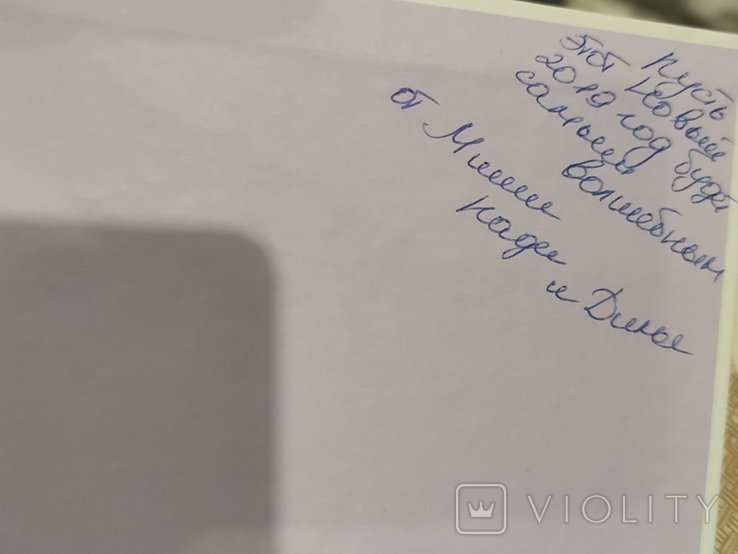 Пусть
этот Новый
2019 год будет
самым
волшебным
от Миши
Нади
и Дины
VIOLITY